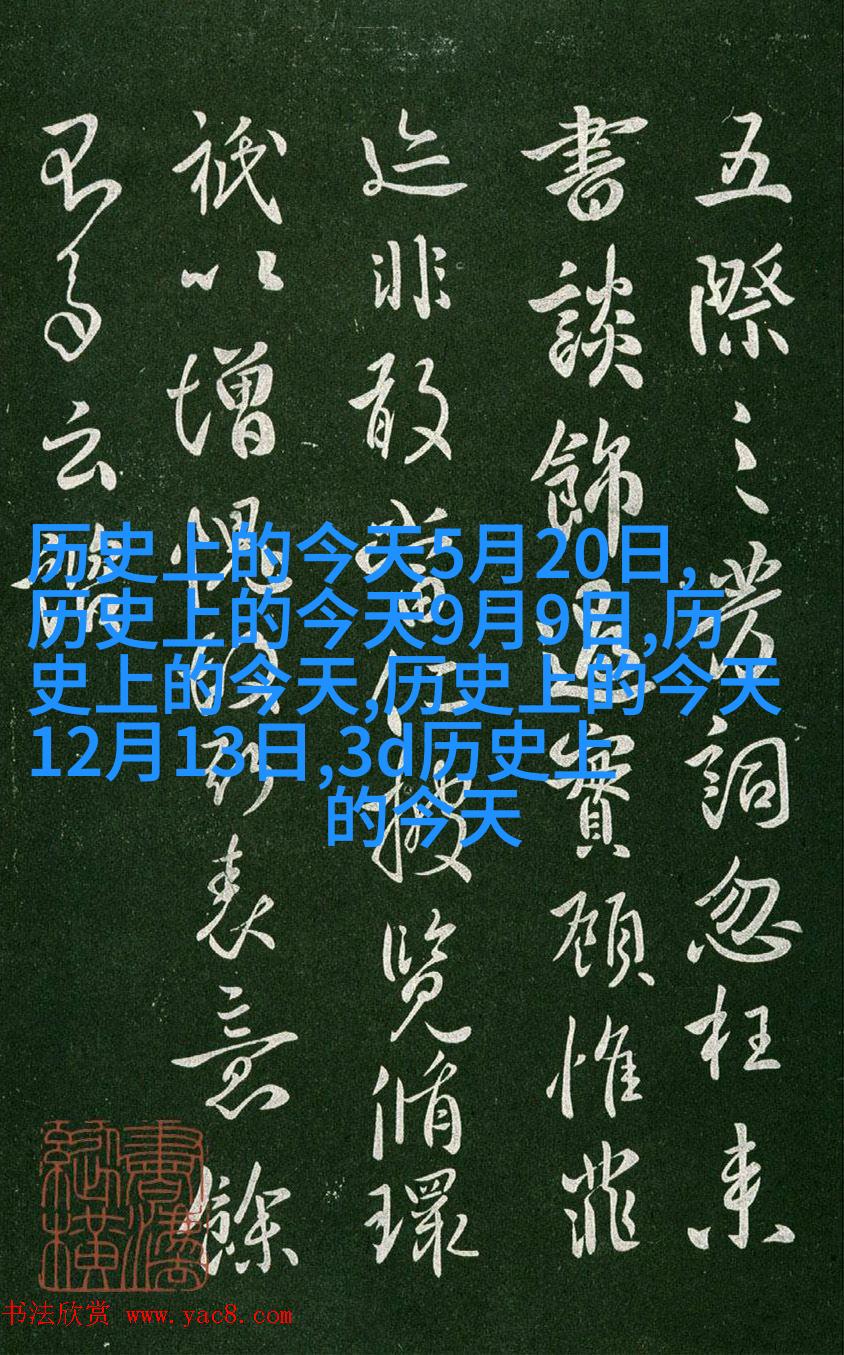 五際之勞詞忽枉来
書談飾過實顧惟菲
迹非敢當覽脩環
祇以增愧表意餘
云
历史上的今天5月20日,
历史上的今天9月9日,历
史上的今天,历史上的今天
12月13日,3d历史上
的今天
书法欣赏 www.yac8.com